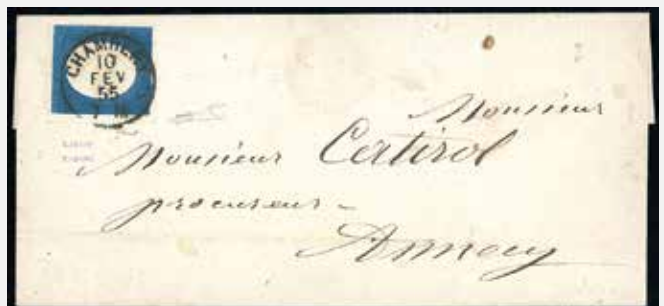 CHAMBERY
10
FEV
55
Monsieur
Monsieur Certirol
procureur -
Annecy